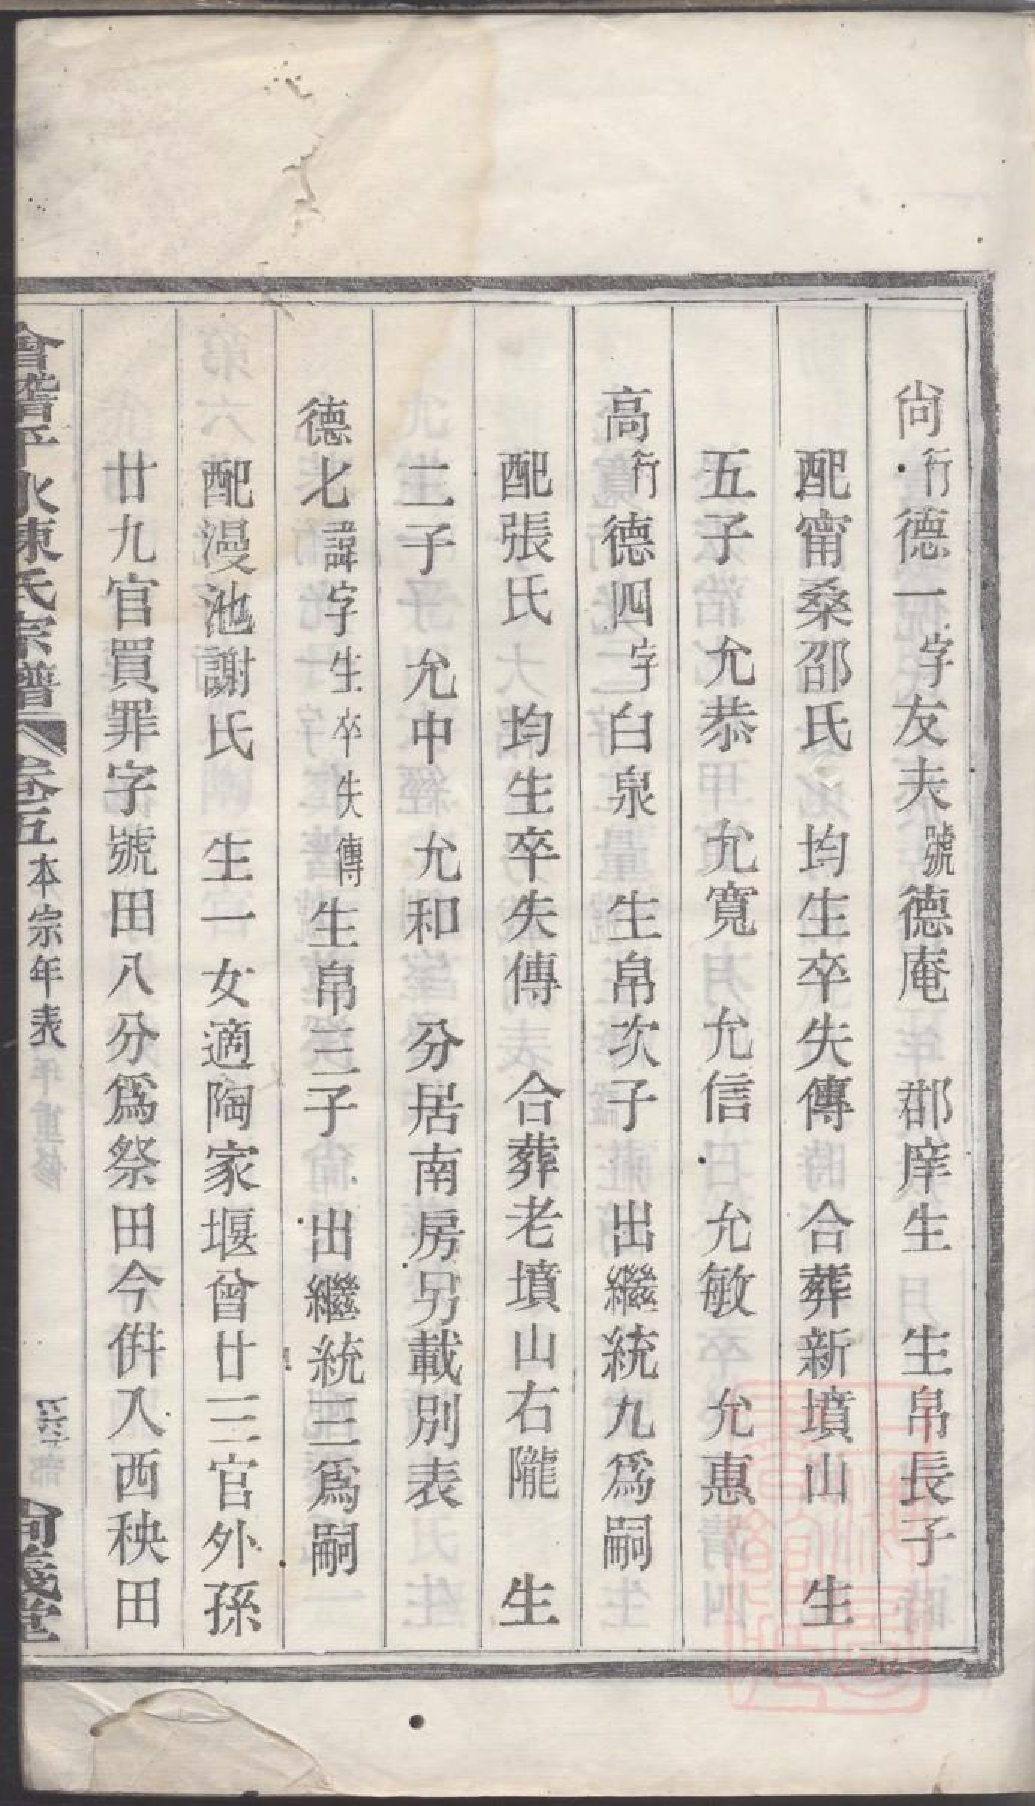 尙行德一字友夫號德庵 郡庠生 生帛長子
配甯桑邵氏 均生卒失傳 合葬新墳山 生
五子 允恭 允寬 允信 允敏 允惠
高行德四字白泉 生帛次子 出繼統九爲嗣
配張氏 均生卒失傳 合葬老墳山右隴 生
二子 允中 允和 分居南房另載別表
德七諱字生卒失傳 生帛三子 出繼統三爲嗣
配漫池謝氏 生一女適陶家堰曾廿三官外孫
廿九官買罪字號田八分爲祭田今倂入西秧田
會稽平水陳氏宗譜 卷五 本宗年表 尙義堂